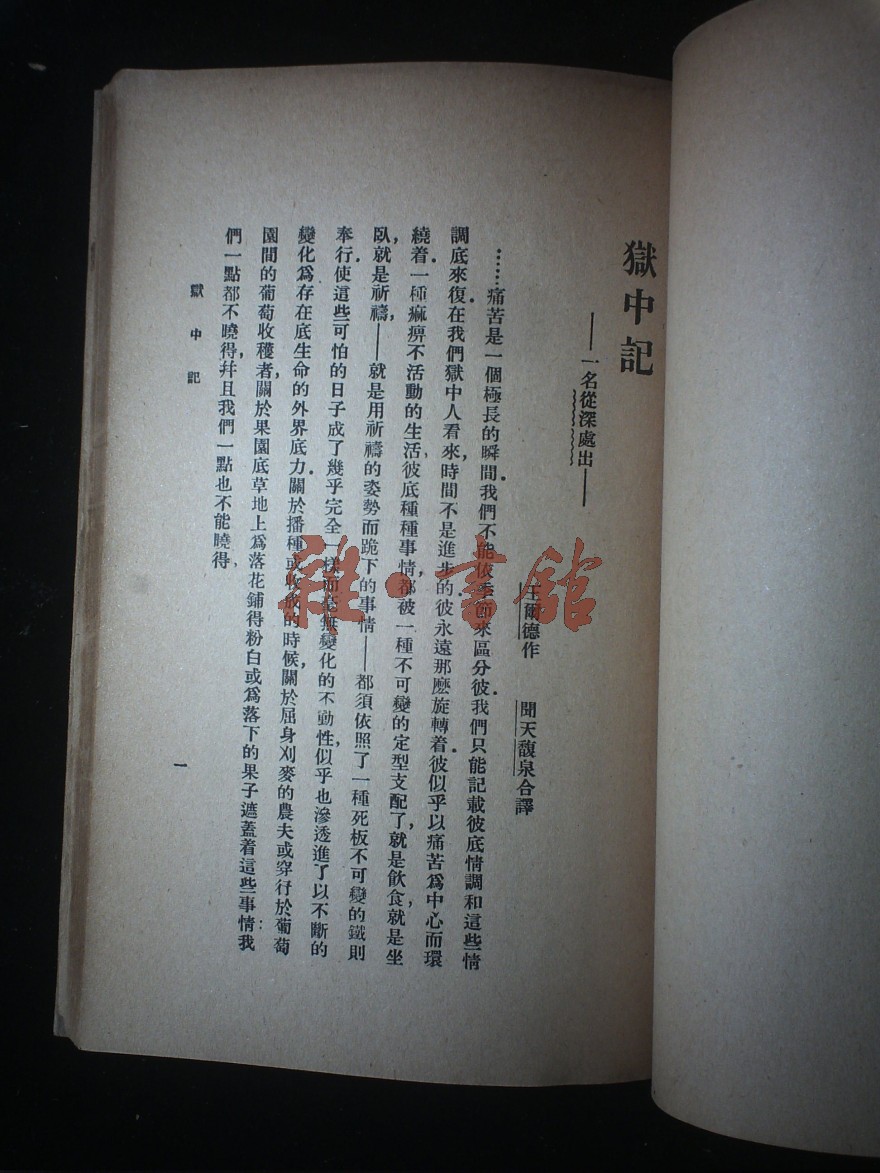 獄中記
——一名從深處出——
王爾德作　聞天馥泉合譯
……痛苦是一個極長的瞬間.我們不能依季節來區分彼.我們只能記載彼底情調和這些情
調底來復.在我們獄中人看來,時間不是進步的.彼永遠那麽旋轉着.彼似乎以痛苦爲中心而環
繞着.一種痲痹不活動的生活,彼底種種事情,都被一種不可變的定型支配了,就是飲食,就是坐
臥,就是祈禱——就是用祈禱的姿勢而跪下的事情——都須依照了一種死板不可變的鐵則
奉行.使這些可怕的日子成了幾乎完全一樣而毫無變化的不動性,似乎也滲透進了以不斷的
變化爲存在底生命的外界底力.關於播種或收成的時候,關於屈身刈麥的農夫或穿行於葡萄
園間的葡萄收穫者,關於果園底草地上爲落花鋪得粉白或爲落下的果子遮蓋着這些事情:我
們一點都不曉得,幷且我們一點也不能曉得.
獄中記
一
雅·書館